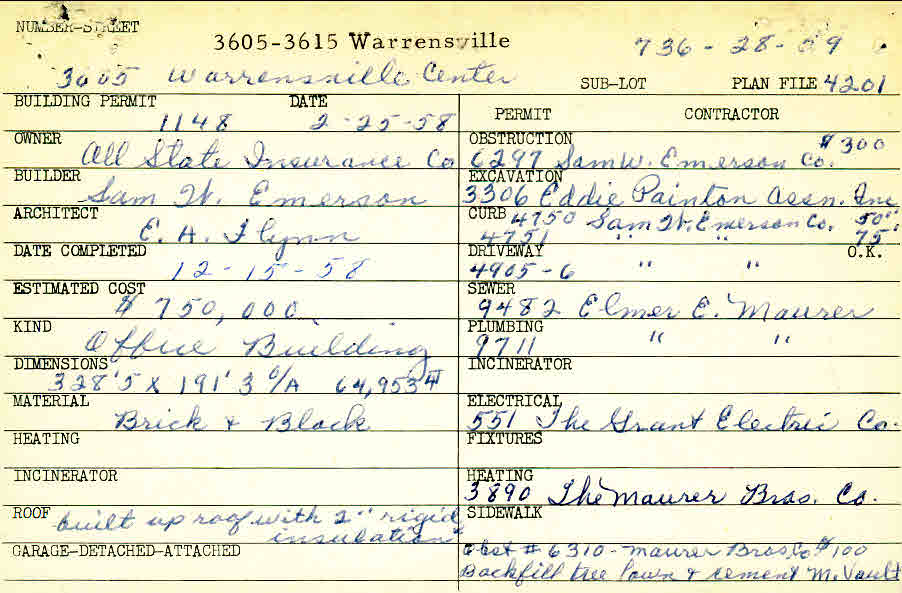 NUMBER-STREET
3605-3615 Warrensville
736-28-09
3605 Warrensville Center
SUB-LOT PLAN FILE 4201
BUILDING PERMIT DATE
1148 2-25-58
PERMIT CONTRACTOR
OWNER
All State Insurance Co
OBSTRUCTION $300
6297 Sam W. Emerson Co.
BUILDER
Sam W. Emerson
EXCAVATION
3306 Eddie Painton Assn. Inc
ARCHITECT
E. A. Flynn
CURB 4750 Sam W. Emerson Co. 50"
4751 " " 75'
DATE COMPLETED
12-15-58
DRIVEWAY O.K.
4905-6 " "
ESTIMATED COST
$750,000
SEWER
9482 Elmer E. Maurer
KIND
Office Building
PLUMBING
9711 " "
DIMENSIONS
328'5 X 191'3 O/A 64,953
INCINERATOR
MATERIAL
Brick + Block
ELECTRICAL
551 The Grant Electric Co.
HEATING
FIXTURES
INCINERATOR
HEATING
3890 The Maurer Bros. Co.
ROOF
built up roof with 2" rigid
insulation
SIDEWALK
GARAGE-DETACHED-ATTACHED
obst # 6310 - Maurer Bros. Co $100
Backfill tree lawn & cement M. Vault